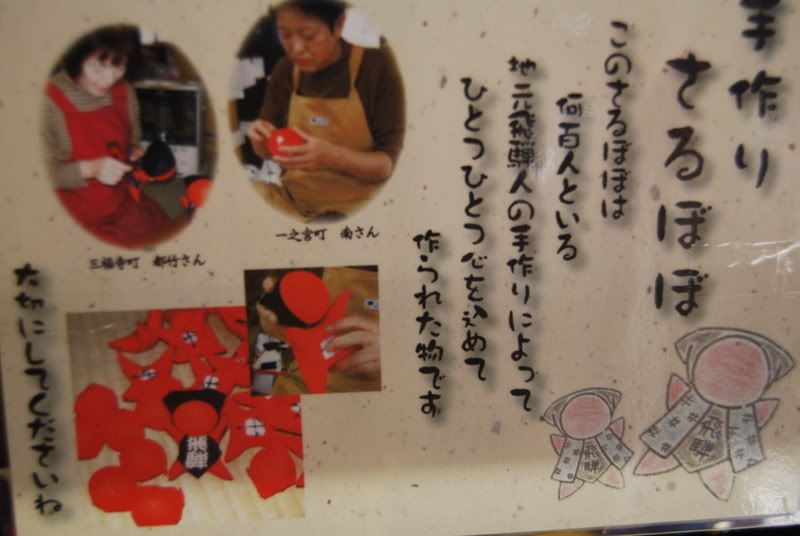 手作り
さるぼぼ
このさるぼぼは
何百人といる
地元飛騨人の手作りによって
ひとつひとつ心を込めて
作られた物です
大切にしてくださいね
一之宮町 南さん
三福寺町 都竹さん
飛騨
飛騨
飛騨